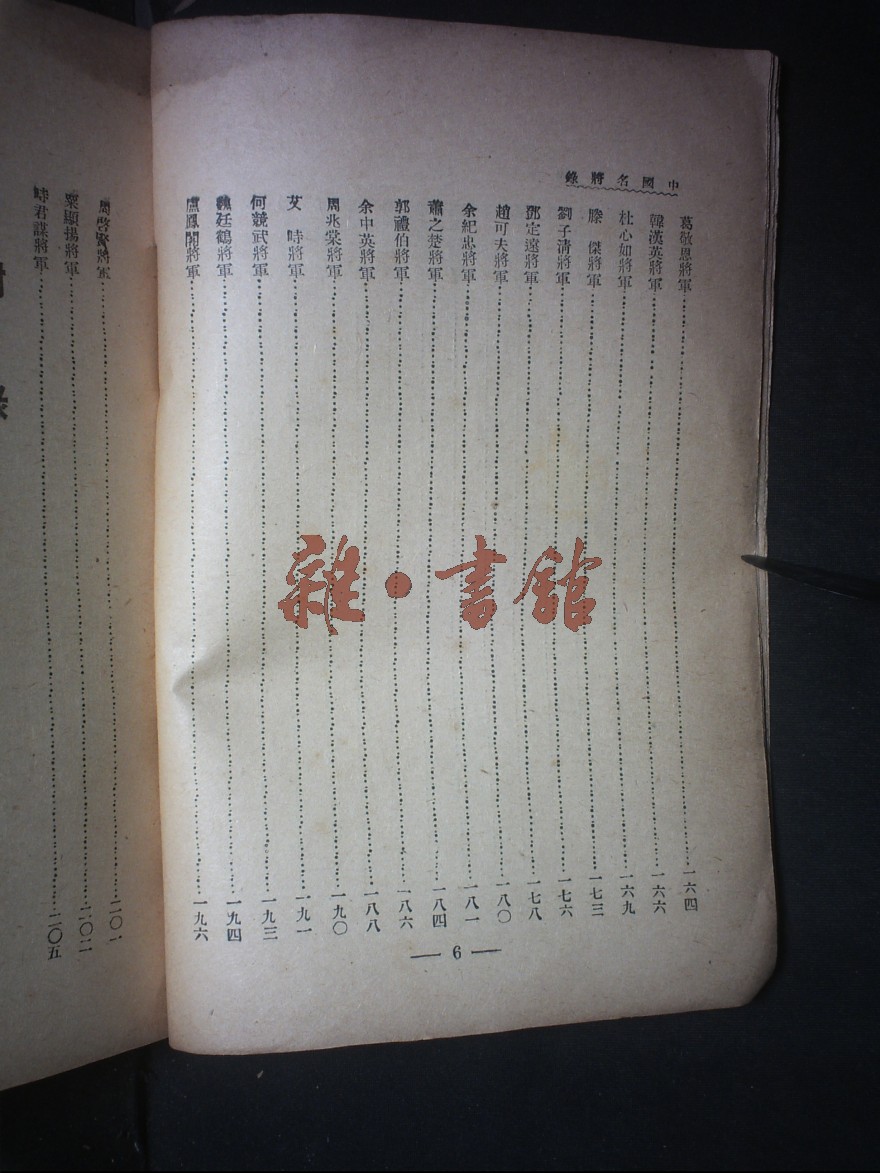 中國名將錄
葛敬恩將軍……一六四
韓漢英將軍……一六六
杜心如將軍……一六九
滕　傑將軍……一七三
劉子清將軍……一七六
鄧定遠將軍……一七八
趙可夫將軍……一八〇
余紀忠將軍……一八一
蕭之楚將軍……一八四
郭禮伯將軍……一八六
余中英將軍……一八八
周兆棠將軍……一九〇
艾　時將軍……一九一
何競武將軍……一九三
魏廷鶴將軍……一九四
盧鳳閣將軍……一九六
— 6 —
將軍……二〇一
粟顯揚將軍……二〇二
君謀將軍……二〇五
錄
雜·書館